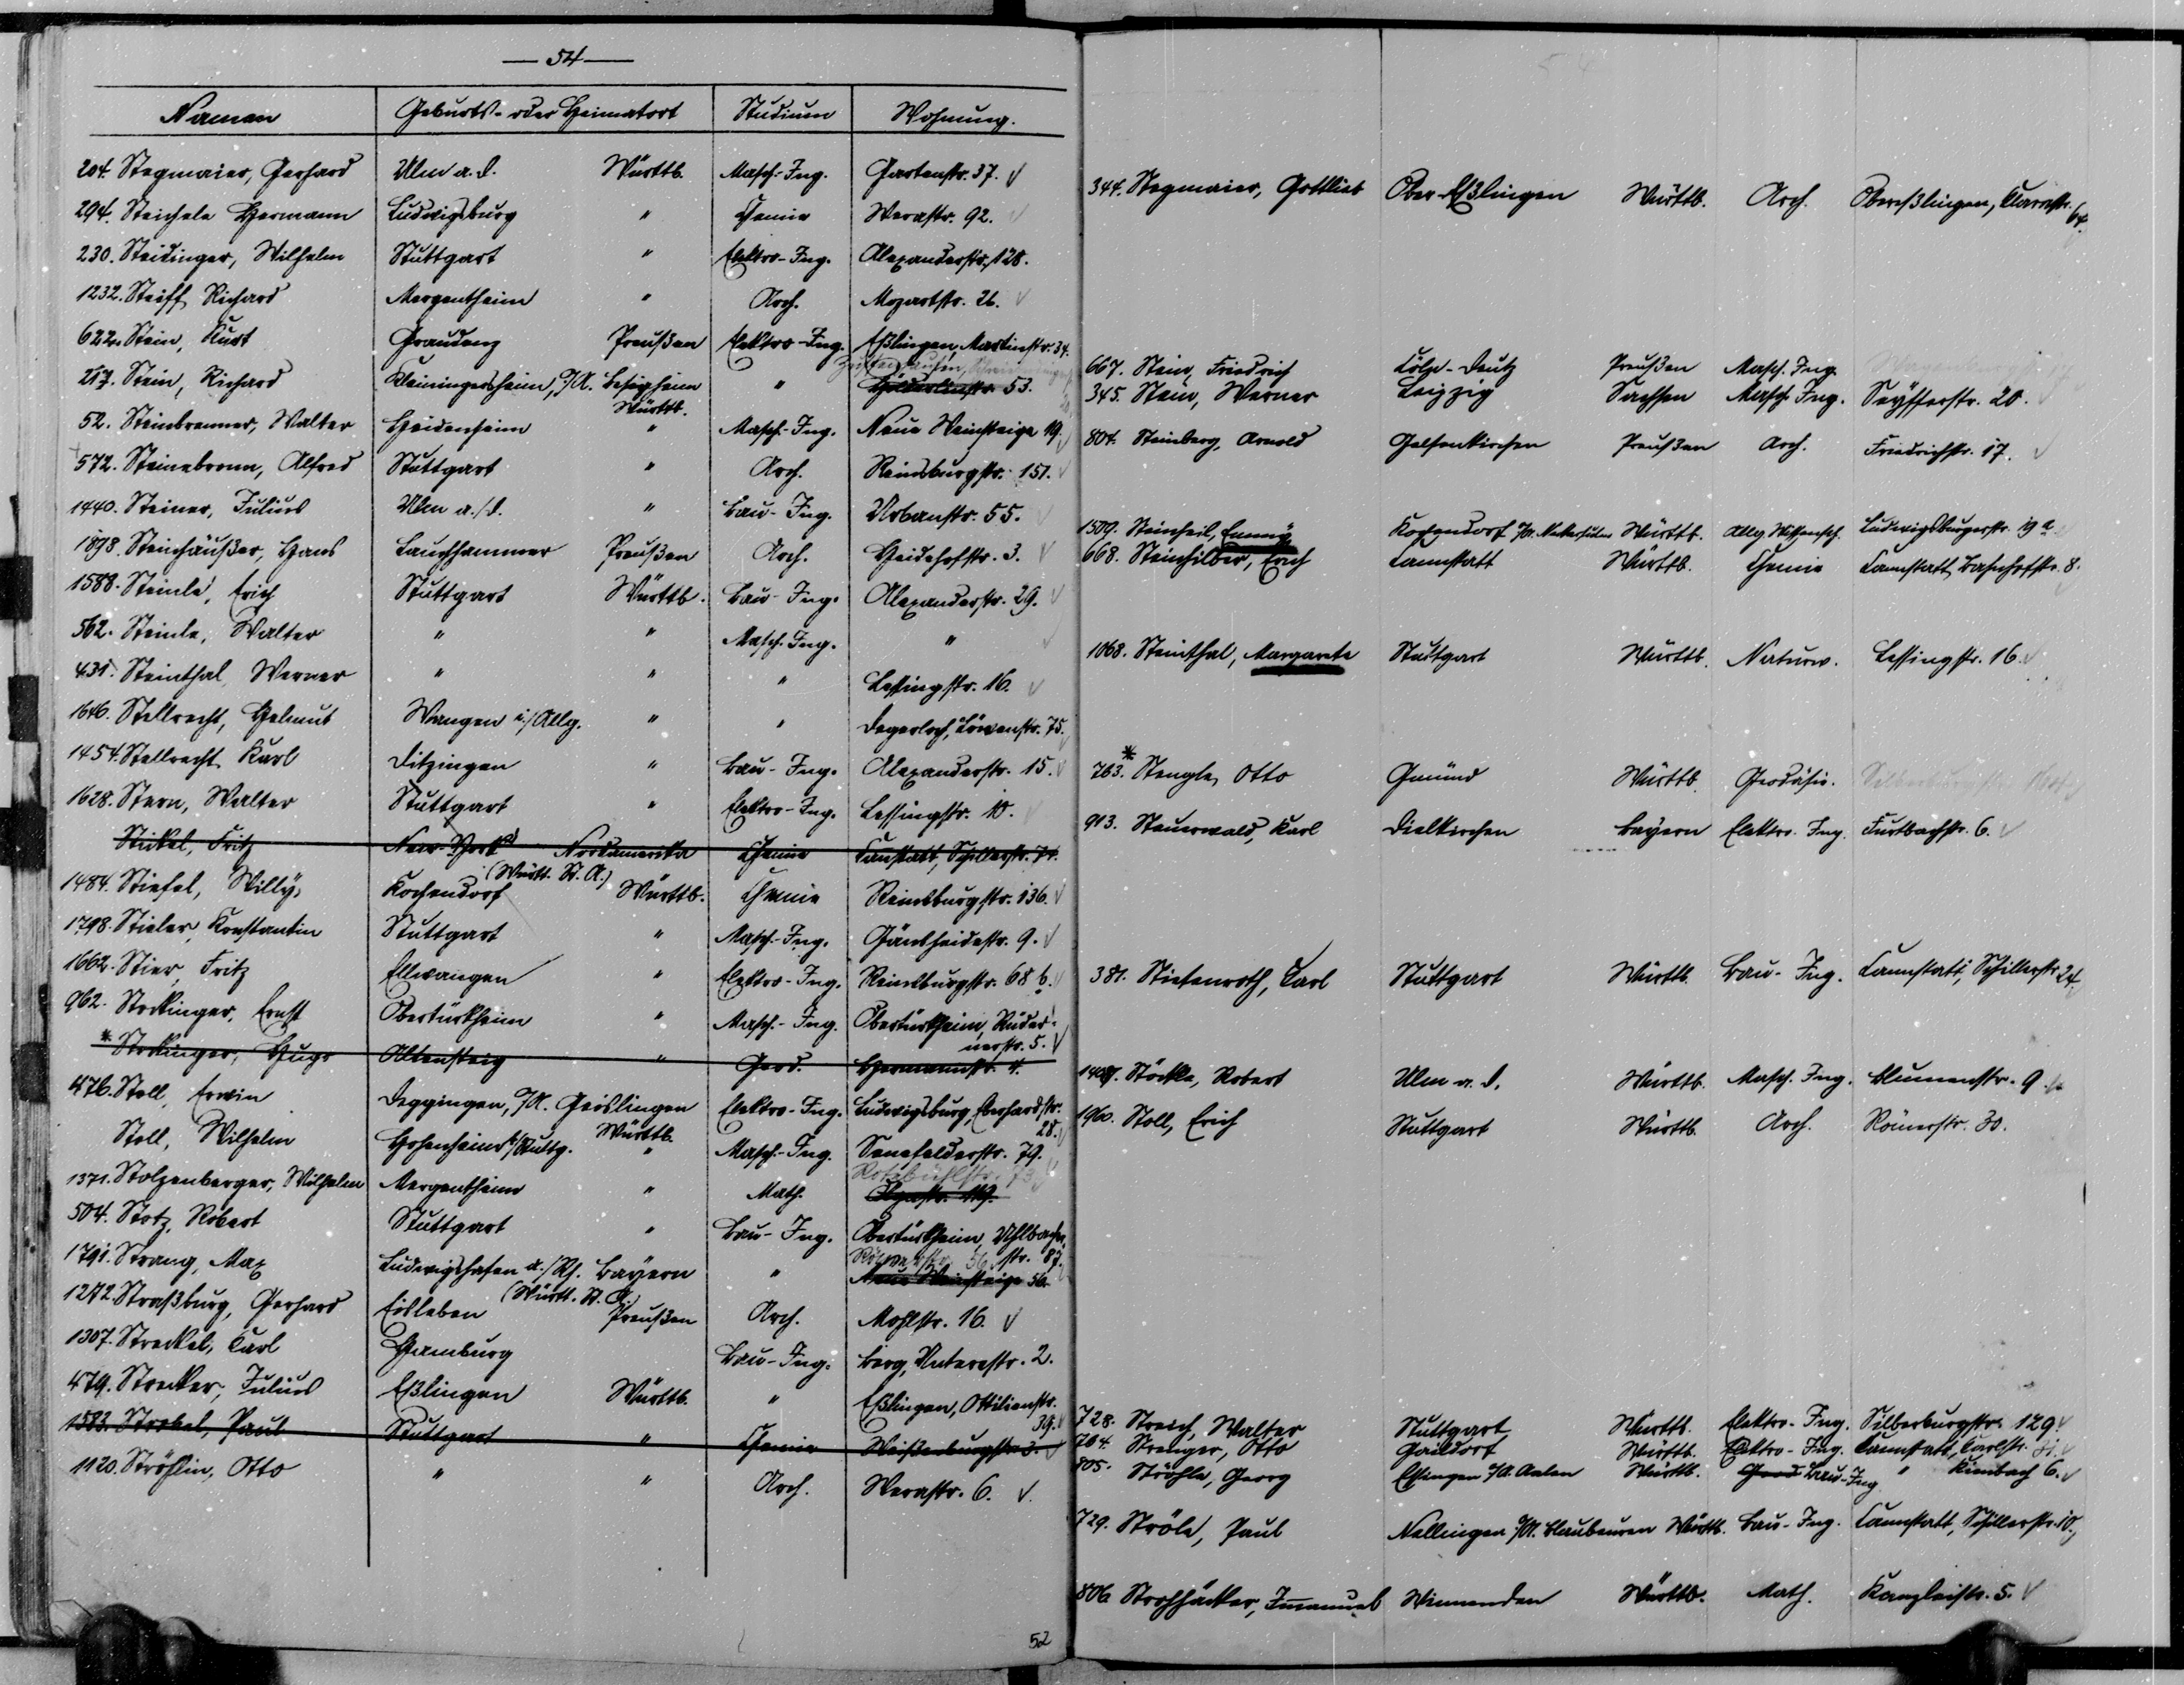 — 54 —
Namen Geburts- oder Heimatort Studium Wohnung.
204. Stegmaier, Gerhard Ulm a. d. Württb. Masch.-Ing. Gartenstr. 37. √
294. Steichele Hermann Ludwigsburg " Chemie Werastr. 92. √
230. Steidinger, Wilhelm Stuttgart " Elektro-Ing. Alexanderstr. 128.
1232. Steiff Richard Mergentheim " Arch. Mozartstr. 26. √
622. Stein, Kurt Graudenz Preußen Elektro-Ing. Eßlingen, Martinstr. 34.
217. Stein, Richard Kleiningersheim, O/A. Besigheim " Hölderlinstr. 53.
Württb.
52. Steinbrenner, Walter Heidenheim " Masch.-Ing. Neue Weinsteige 19. √
572. Steinebronn, Alfred Stuttgart " Arch. Reinsburgstr. 151. √
1440. Steiner, Julius Ulm a./d. " Bau-Ing. Urbanstr. 55. √
1898. Steinhäußer, Hans Lauchhammer Preußen Arch. Heidehofstr. 3. √
1588. Steinle, Erich Stuttgart Württb. Bau-Ing. Alexanderstr. 29. √
562. Steinle, Walter " " Masch.-Ing. " √
431. Steinthal, Werner " " " Lessingstr. 16. √
1646. Stellrecht, Helmut Wangen i./Allg. " " Degerloch, Löwenstr. 75. √
1454. Stellrecht Karl Ditzingen " Bau-Ing. Alexanderstr. 15. √
1628. Stern, Walter Stuttgart " Elektro-Ing. Lessingstr. 10. √
Stickel, Fritz New-York Nordamerika Chemie Cannstatt, Schillerstr.
(Württ. St. A.)
1484. Stiefel, Willy, Kochendorf Württb. Chemie Reinsburgstr. 136. √
1798. Stieler, Konstantin Stuttgart " Masch.-Ing. Gänsheidestr. 9. √
1662. Stier, Fritz Ellwangen " Elektro-Ing. Reinsburgstr. 68 b. √
962. Stockinger, Ernst Obertürkheim " Masch.-Ing. Obertürkheim, Rüder-
nerstr. 5. √
* Stockinger, Hugo Altensteig " Geod. Hermannstr. 4.
476. Stoll, Erwin Deggingen, O/A. Geislingen Elektro-Ing. Ludwigsburg, Eberhardstr.
Württb. 28. √
Stoll, Wilhelm Hohenheim b/Stuttg. " Masch.-Ing. Senefelderstr. 79.
Rotebühlstr. 73 √
1371. Stolzenberger, Wilhelm Mergentheim " Math. Olgastr. 119.
504. Stotz, Robert Stuttgart " Bau-Ing. Obertürkheim, Uhlbacher
str. 87.
1791. Strang, Max Ludwigshafen a./Rh. Bayern " Neue Weinsteige 56.
(Württ. St. A.)
1272. Straßburg, Gerhard Eisleben Preußen Arch. Mohlstr. 16. √
1307. Streckel, Carl Hamburg Bau-Ing. Berg, Unterestr. 2.
479. Strecker, Julius Eßlingen Württb. " Eßlingen, Ottilienstr.
39. √
1583. Strebel, Paul Stuttgart " Chemie Weißenburgstr. 3. √
1120. Ströhlin, Otto " " Arch. Werastr. 6. √.
52
54
344. Stegmaier, Gottlieb Ober-Eßlingen Württb. Arch. Obereßlingen, Clarastr. 64.
667. Stein, Friedrich Cöln-Deutz Preußen Masch. Ing.
345. Stein, Werner Leipzig Sachsen Masch. Ing. Seyfferstr. 20. √
804. Steinberg, Arnold Gelsenkirchen Preußen Arch. Friedrichstr. 17. √
1509. Steinheil, Emmy Kochendorf O/A. Neckarsulm Württb. Allg. Wissensch. Ludwigsburgerstr. 19 a
668. Steinhilber, Erich Cannstatt Württb. Chemie Cannstatt, Bahnhofstr. 8. √
1068. Steinthal, Margarete Stuttgart Württb. Naturw. Lessingstr. 16. √
* 763. Stengle, Otto Gmünd Württb. Geodäsie.
913. Steuerwald, Karl Dielkirchen Bayern Elektro. Ing. Furtbachstr. 6. √
381. Stiefenroth, Carl Stuttgart Württb. Bau-Ing. Cannstatt, Schillerstr. 24.
1407. Stöckle, Robert Ulm a. d. Württb. Masch. Ing. Blumenstr. 9.
1960. Stoll, Erich Stuttgart Württb. Arch. Römerstr. 30.
728. Streich, Walter Stuttgart Württb. Elektro-Ing. Silberburgstr. 129. √
704. Strenger, Otto Gaildorf Württb. Elektro-Ing. Cannstatt, Karlstr. 31. √
805. Ströhle, Georg Essingen O/A. Aalen Württb. Geod Bau-Ing " Kienbach 6. √
729. Ströle, Paul Nellingen O/A. Blaubeuren Württb. Bau-Ing. Cannstatt, Schillerstr. 10.
806 Strohhäcker, Immanuel Winnenden Württb. Math. Kanzleistr. 5. √